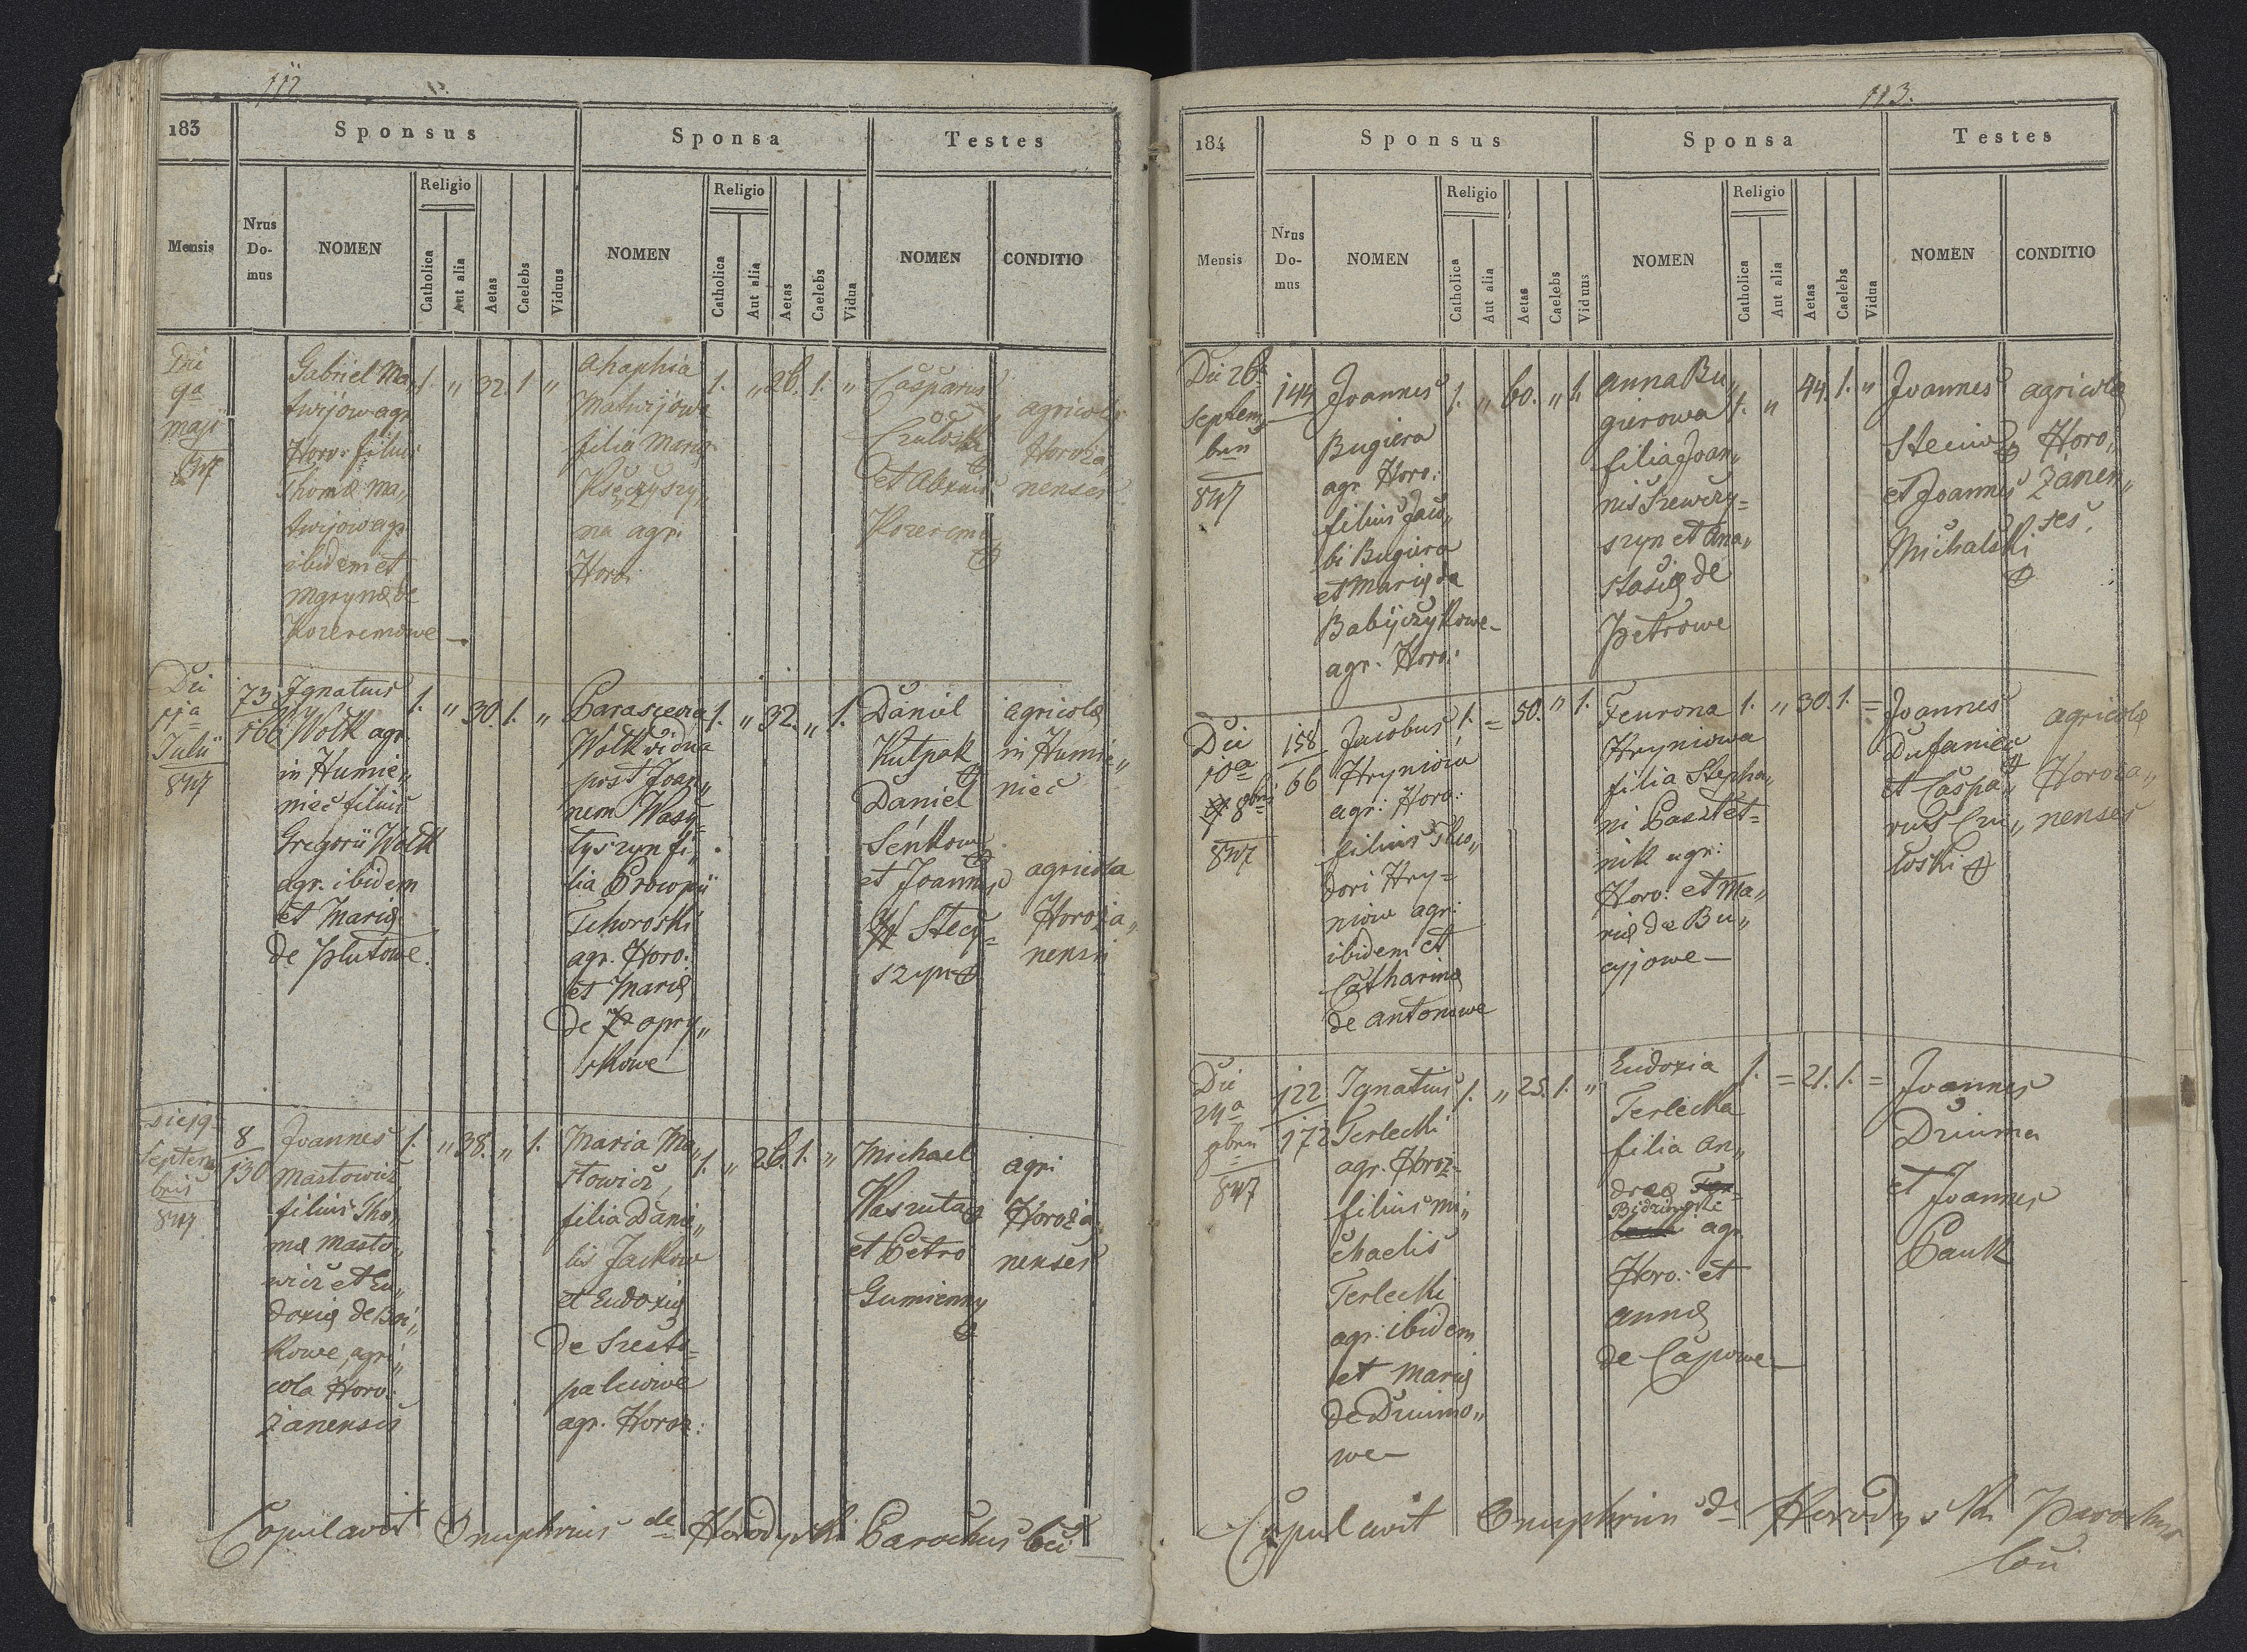 112
183
Sponsus
Sponsa
Testes
Mensis
Nrus
Do-
mus
NOMEN
Religio
Catholica
Aut alia
Aetas
Caelebs
Viduus
NOMEN
Religio
Catholica
Aut alia
Aetas
Caelebs
Vidua
NOMEN
CONDITIO
9a
maji
847
Gabriel Ma„
twijow agr.
Horo: filius
Thomæ Ma„
twijow agr.
ibidem et
de
Kozeremowe
1. „ 32. 1 „
Ahaphia
Matwijowa
filia Mariæ
na agr.
Horo:
1. „ 26. 1. „
Casparus
et
agricolæ
Horoża„
nenses
Die
11a
Julii
847
73
166
Ignatius
Wolk agr.
in Humie„
niec filius
Gregorii Wolk
agr. ibidem
et Mariæ
de Plutowe.
1. „ 30. 1. „
Parascevia
Wolk vidua
post Joan„
nem Wasy„
lyszyn fi„
lia Procopii
Tchoroski
agr. Horo:
et Mariæ
de Zapry„
skowe
1. „ 32. „ 1.
Daniel
Kulpak
Daniel
Senkow
et Joannes
Stecy=
szyn
agricolæ
in Humie„
niec
agricola
Horoża„
nensis
die 19
Septem
bris
847
8
130
Joannes
Mastowicz
filius Tho„
mæ Masto„
wicz et Eu„
doxiæ de Boi„
kowe, agri„
cola Horo:
żanensis
1. „ 38. „ 1.
Maria Ma„
stowicz,
filia Danie„
lis Jackow
et Eudoxiæ
de Szesto=
palciowe
agr. Horoz:
1. „ 26. 1. „
Michael
Kaszuta
et Petro
Gumienny
agri
Horoża„
nenses
Copulavit Onuphrius de Horodyski Parochus loci
113.
184
Sponsus
Sponsa
Testes
Mensis
Nrus
Do-
mus
NOMEN
Religio
Catholica
Aut alia
Aetas
Caelebs
Viduus
NOMEN
Religio
Catholica
Aut alia
Aetas
Caelebs
Vidua
NOMEN
CONDITIO
Die 26a
Septem„
bris
847
144
Joannes
Bugiera
agr. Horo:
filius Jaco„
bi Bugiera
et Mariæ de
Babijczykowe
agr. Horo:
1. „ 60. „ 1.
Anna Bu„
gierowa
filia Joan„
nis Szewczy=
szyn et Ana„
stasiæ de
Petrowe
1. „ 44. 1. „
Joannes
Steciw
et Joannes
Michalski
agricolæ
Horo„
żanen„
ses.
Die
10a
8bris
847
158
66
Jacobus
Hryniow
agr: Horo:
filius Theo„
dori Hry=
niow agr:
ibidem et
Catharinæ
de Antonowe
1. = 50. „ 1.
Feurona
Hryniowa
filia Stepha„
ni Pasztet=
nik agr:
Horo: et Ma„
riæ de Bu„
cyjowe
1. „ 30. 1. =
Joannes
Dufaniec
et Caspa„
rus Czu„
łoski
agricolæ
Horoża„
nenses
Die
24a
9bris
847
122
172
Ignatius
Terlecki
agr. Horoz-
filius Mi„
chaelis
Terlecki
agr: ibidem
et Mariæ
de Dziumo„
we
1. „ 25. 1. „
Eudoxia
Terlecka
filia An„
dreæ
Bidzinski
agr.
Horo: et
Annæ
de Capowe
1. = 21. 1. =
Joannes
Dziuma
et Joannes
Pauk
Copulavit Onuphrius de Horodyski Parochus
loci